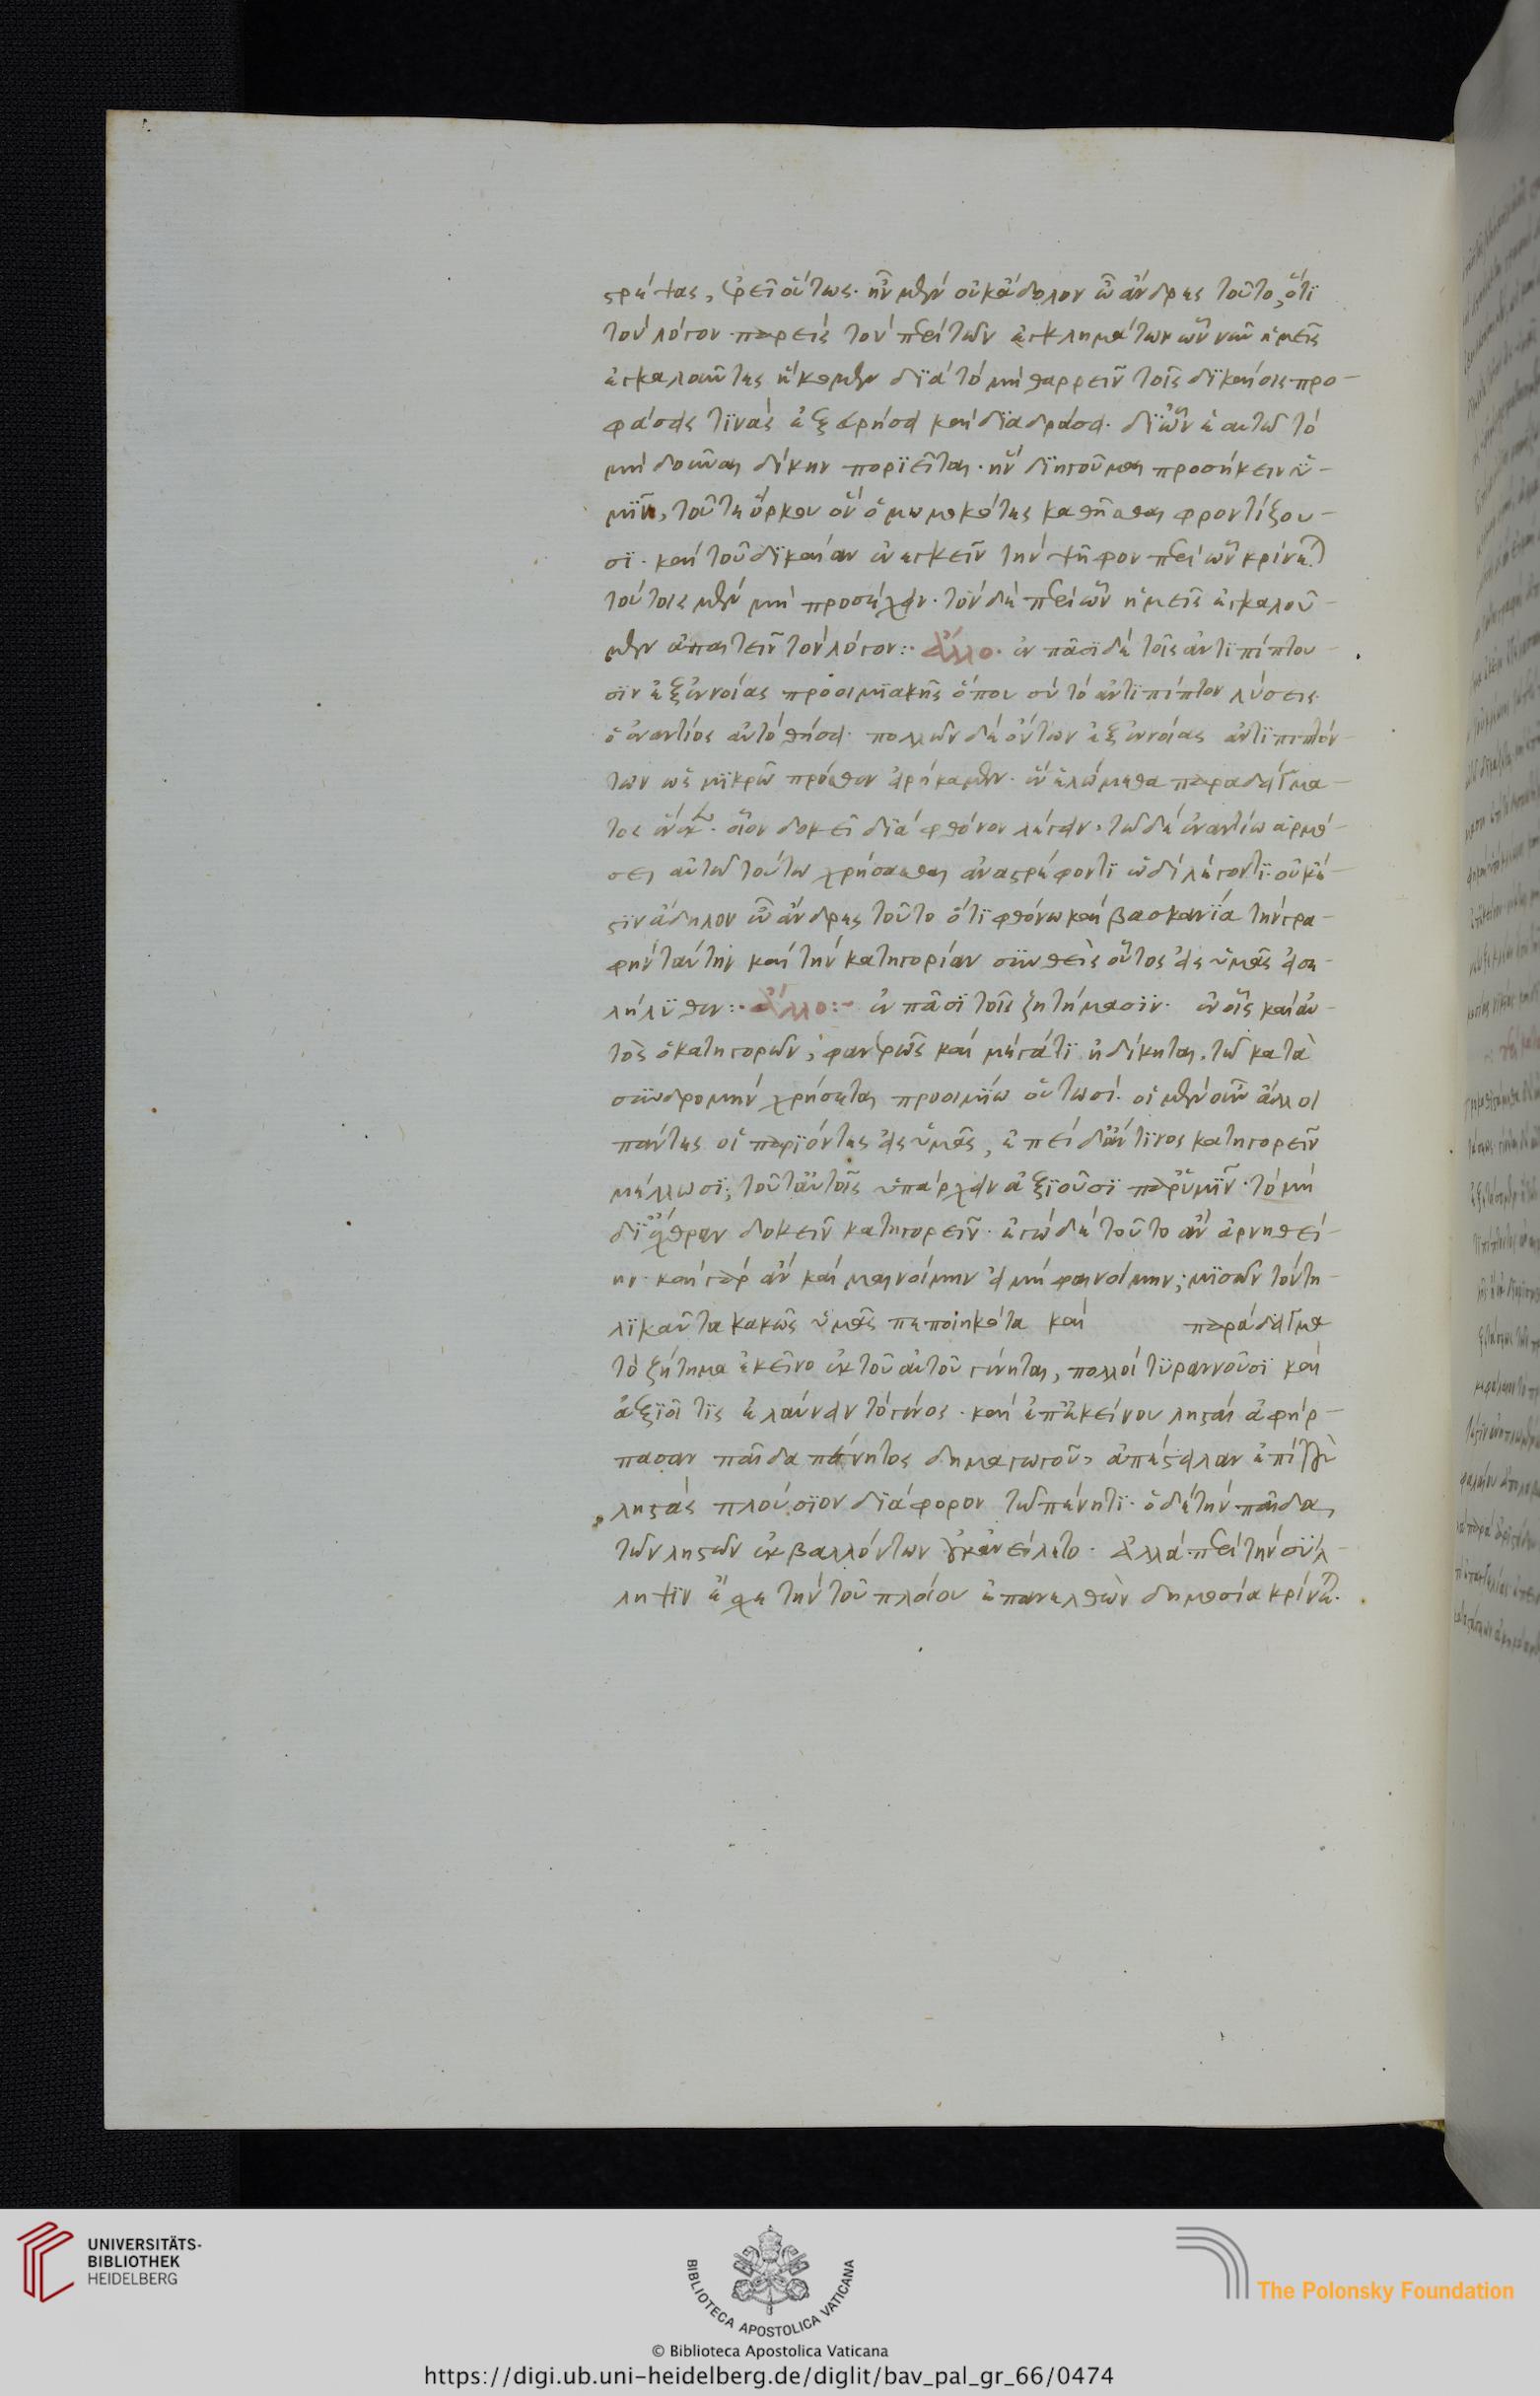 στρέψας, ἐρεῖ οὕτως· ἦν μὲν οὐκ ἄδηλον ὦ ἄνδρες τοῦτο, ὅτι
τὸν λόγον παρεὶς τὸν περὶ τῶν ἐγκλημάτων ὧν νῦν ἡμεῖς
ἐγκαλοῦντες ἥκομεν διὰ τὸ μὴ θαρρεῖν τοῖς δικαίοις προ-
φάσεις τινὰς ἐξευρήσει καὶ διαδράσει· δι' ὧν ἑαυτῶ τὸ
μὴ δοῦναι δίκην ποριεῖται· ἡγοῦμαι προσήκειν ὑ-
μῖν, τοῦ τε ὅρκου ὃν ὀμωμοκότες κάθησθαι φροντίζου-
σι· καὶ τοῦ δικαίαν ἐνεγκεῖν τὴν ψῆφον περὶ ὧν κρίνετε
τούτοις μὲν μὴ προσέχειν· τὸν δὲ περὶ ὧν ἡμεῖς ἐγκαλοῦ-
μεν ἀπαιτεῖν τὸν λόγον:· ἄλλο· ἐν πᾶσι δὲ τοῖς ἀντιπίπτου-
σιν ἐξ ἐννοίας προοιμιακῆς ὅπου σὺ τὸ ἀντιπίπτον λύσεις
ὁ ἐναντίος αὐτὸ θήσει· πολλῶν δὲ ὄντων ἐξ ἐννοίας ἀντιπιπτόν-
των ὡς μικρῶ πρόσθεν εἰρήκαμεν· ἓν ἑλώμεθα παραδείγμα-
τος ἕνεκα· οἷον δοκεῖ διὰ φθόνον λέγειν· τῶ δὲ ἐναντίω ἁρμό-
σει αὐτῶ τούτω χρήσασθαι ἀναστρέφοντι ὡδὶ λέγοντι· οὐκ ἔ-
στιν ἄδηλον ὦ ἄνδρες τοῦτο ὅτι φθόνω καὶ βασκανία τὴν γρα-
φὴν ταύτην καὶ τὴν κατηγορίαν συνθεὶς οὗτος εἰς ὑμᾶς εἰσε-
λήλυθεν:· ἄλλο:- ἐν πᾶσι τοῖς ζητήμασιν· ἐν οἷς καὶ αὐ-
τὸς ὁ κατηγορῶν, φανερῶς καὶ μέγα τι ἠδίκηται, τῶ κατὰ
συνδρομὴν χρήσεται προοιμίω οὑτωσί· οἱ μὲν οὖν ἄλλοι
πάντες οἱ παριόντες εἰς ὑμᾶς, ἐπειδάν τινος κατηγορεῖν
μέλλωσι, τοῦτ' αὐτοῖς ὑπάρχειν ἀξιοῦσι παρ' ὑμῖν· τὸ μὴ
δι' ἔχθραν δοκεῖν κατηγορεῖν· ἐγὼ δὲ τοῦτο ἂν ἀρνηθεί-
ην· καὶ γὰρ ἂν καὶ μαινοίμην εἰ μὴ φαινοίμην, μισῶν τὸν τη-
λικαῦτα κακῶς ὑμᾶς πεποιηκότα καὶ παράδειγμα
τὸ ζήτημα ἐκεῖνο ἐκ τοῦ αὐτοῦ γένηται, πολλοὶ τυραννοῦσι καὶ
ἀξιοῖ τις ἐλαύνειν τὸ γένος· καὶ ἐπ' ἐκείνου λησταὶ ἀφήρ-
πασαν παῖδα πένητος δημαγωγοῦ, ἀπέστειλαν ἐπὶ τοὺς
ληστὰς πλούσιον διάφορον τῶ πένητι· ὁ δὲ τὴν παῖδα,
τῶν ληστῶν ἐκβαλλόντων οὐκ ἀνείλετο· ἀλλὰ περὶ τὴν σύλ-
ληψιν ἔσχε τὴν τοῦ πλοίου ἐπανελθὼν δημοσία κρίνεται·
UNIVERSITÄTS-
BIBLIOTHEK
HEIDELBERG
BIBLIOTECA APOSTOLICA VATICANA
The Polonsky Foundation
© Biblioteca Apostolica Vaticana
https://digi.ub.uni-heidelberg.de/diglit/bav_pal_gr_66/0474